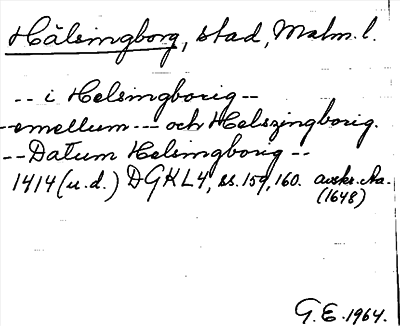 Hälsingborg, stad, Malm. l.
-- i Helsingborig --
-- emellum --- och Helszingborig.
-- Datum Helsingborig --
1414 (u. d.) DGKL4, ss. 159, 160. avskr. Aa.
(1648)
G. E. 1964.